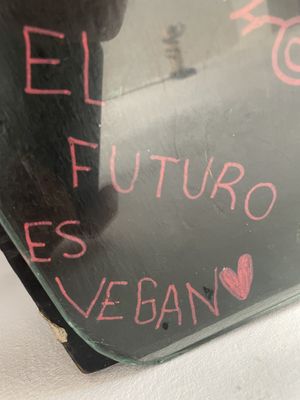 EL
FUTURO
ES
VEGAN